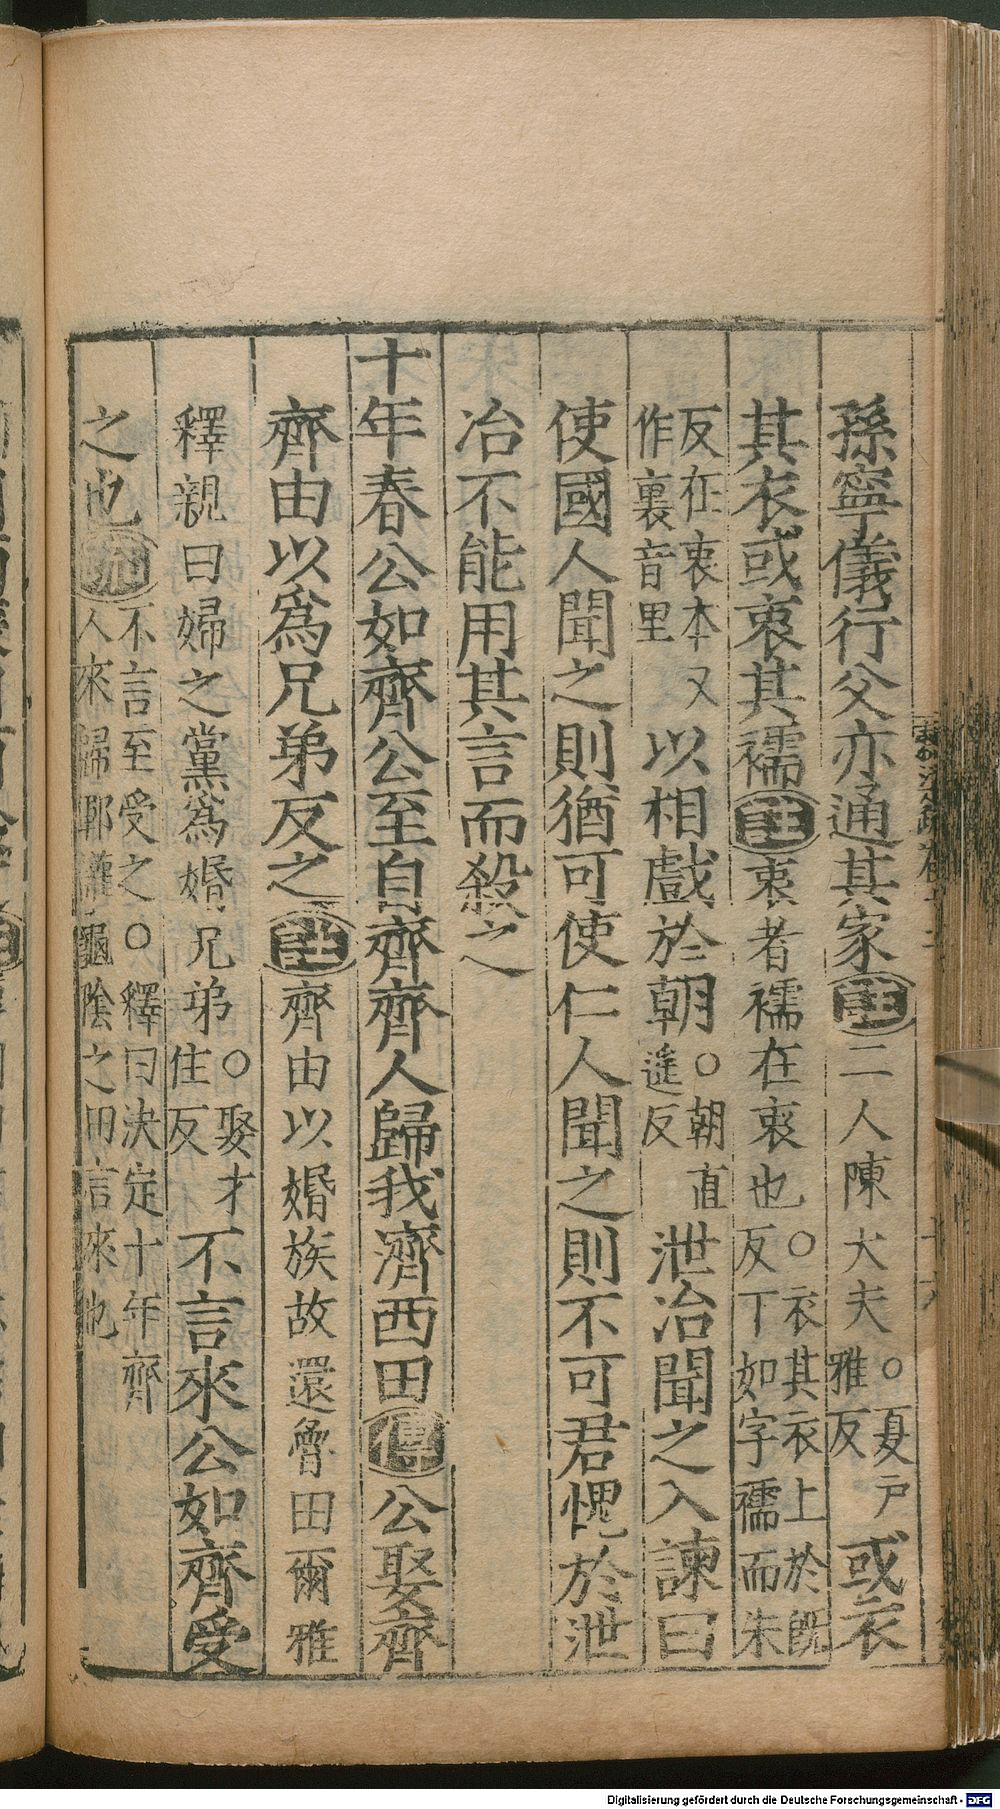 孫寧儀行父亦通其家註二人陳大夫○夏戶雅反或衣
其衣或衷其襦註衷者襦在衷也○衣其衣上於旣反下如字襦而朱
反在衷本又作裏音里以相戲於朝○朝直遥反泄冶聞之入諫曰
使國人聞之則猶可使仁人聞之則不可君愧於泄
冶不能用其言而殺之
十年春公如齊公至自齊齊人歸我濟西田傳公娶齊
齊由以爲兄弟反之註齊由以婚族故還魯田爾雅
釋親曰婦之黨爲婚兄弟○娶才住反不言來公如齊受
之也疏不言至受之○釋曰決定十年齊人來歸鄆讙龜陰之田言來也
Digitalisierung gefördert durch die Deutsche Forschungsgemeinschaft - DFG